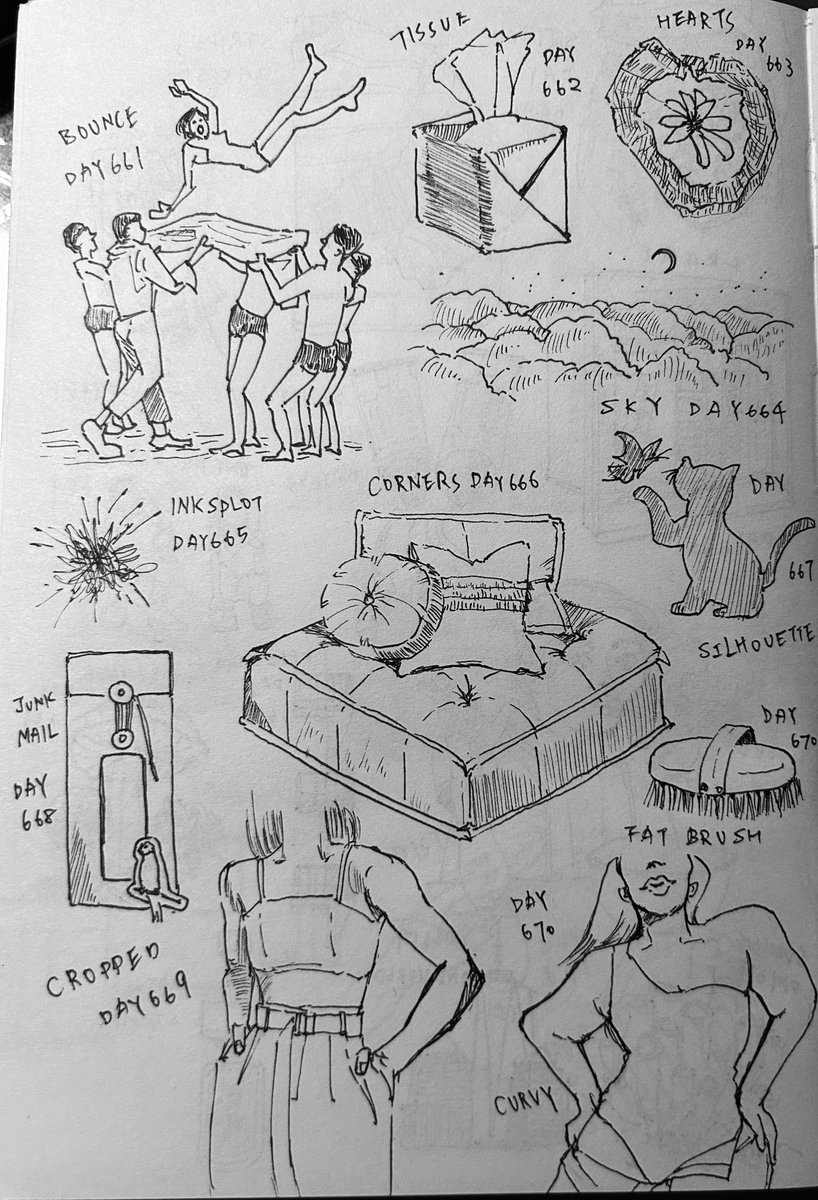 BOUNCE
DAY 661
TISSUE
DAY
662
HEARTS
DAY
663
SKY DAY 664
INKSPLOT
DAY 665
CORNERS DAY 666
DAY
667
SILHOUETTE
JUNK
MAIL
DAY
668
DAY
670
FAT BRUSH
CROPPED
DAY 669
DAY
670
CURVY